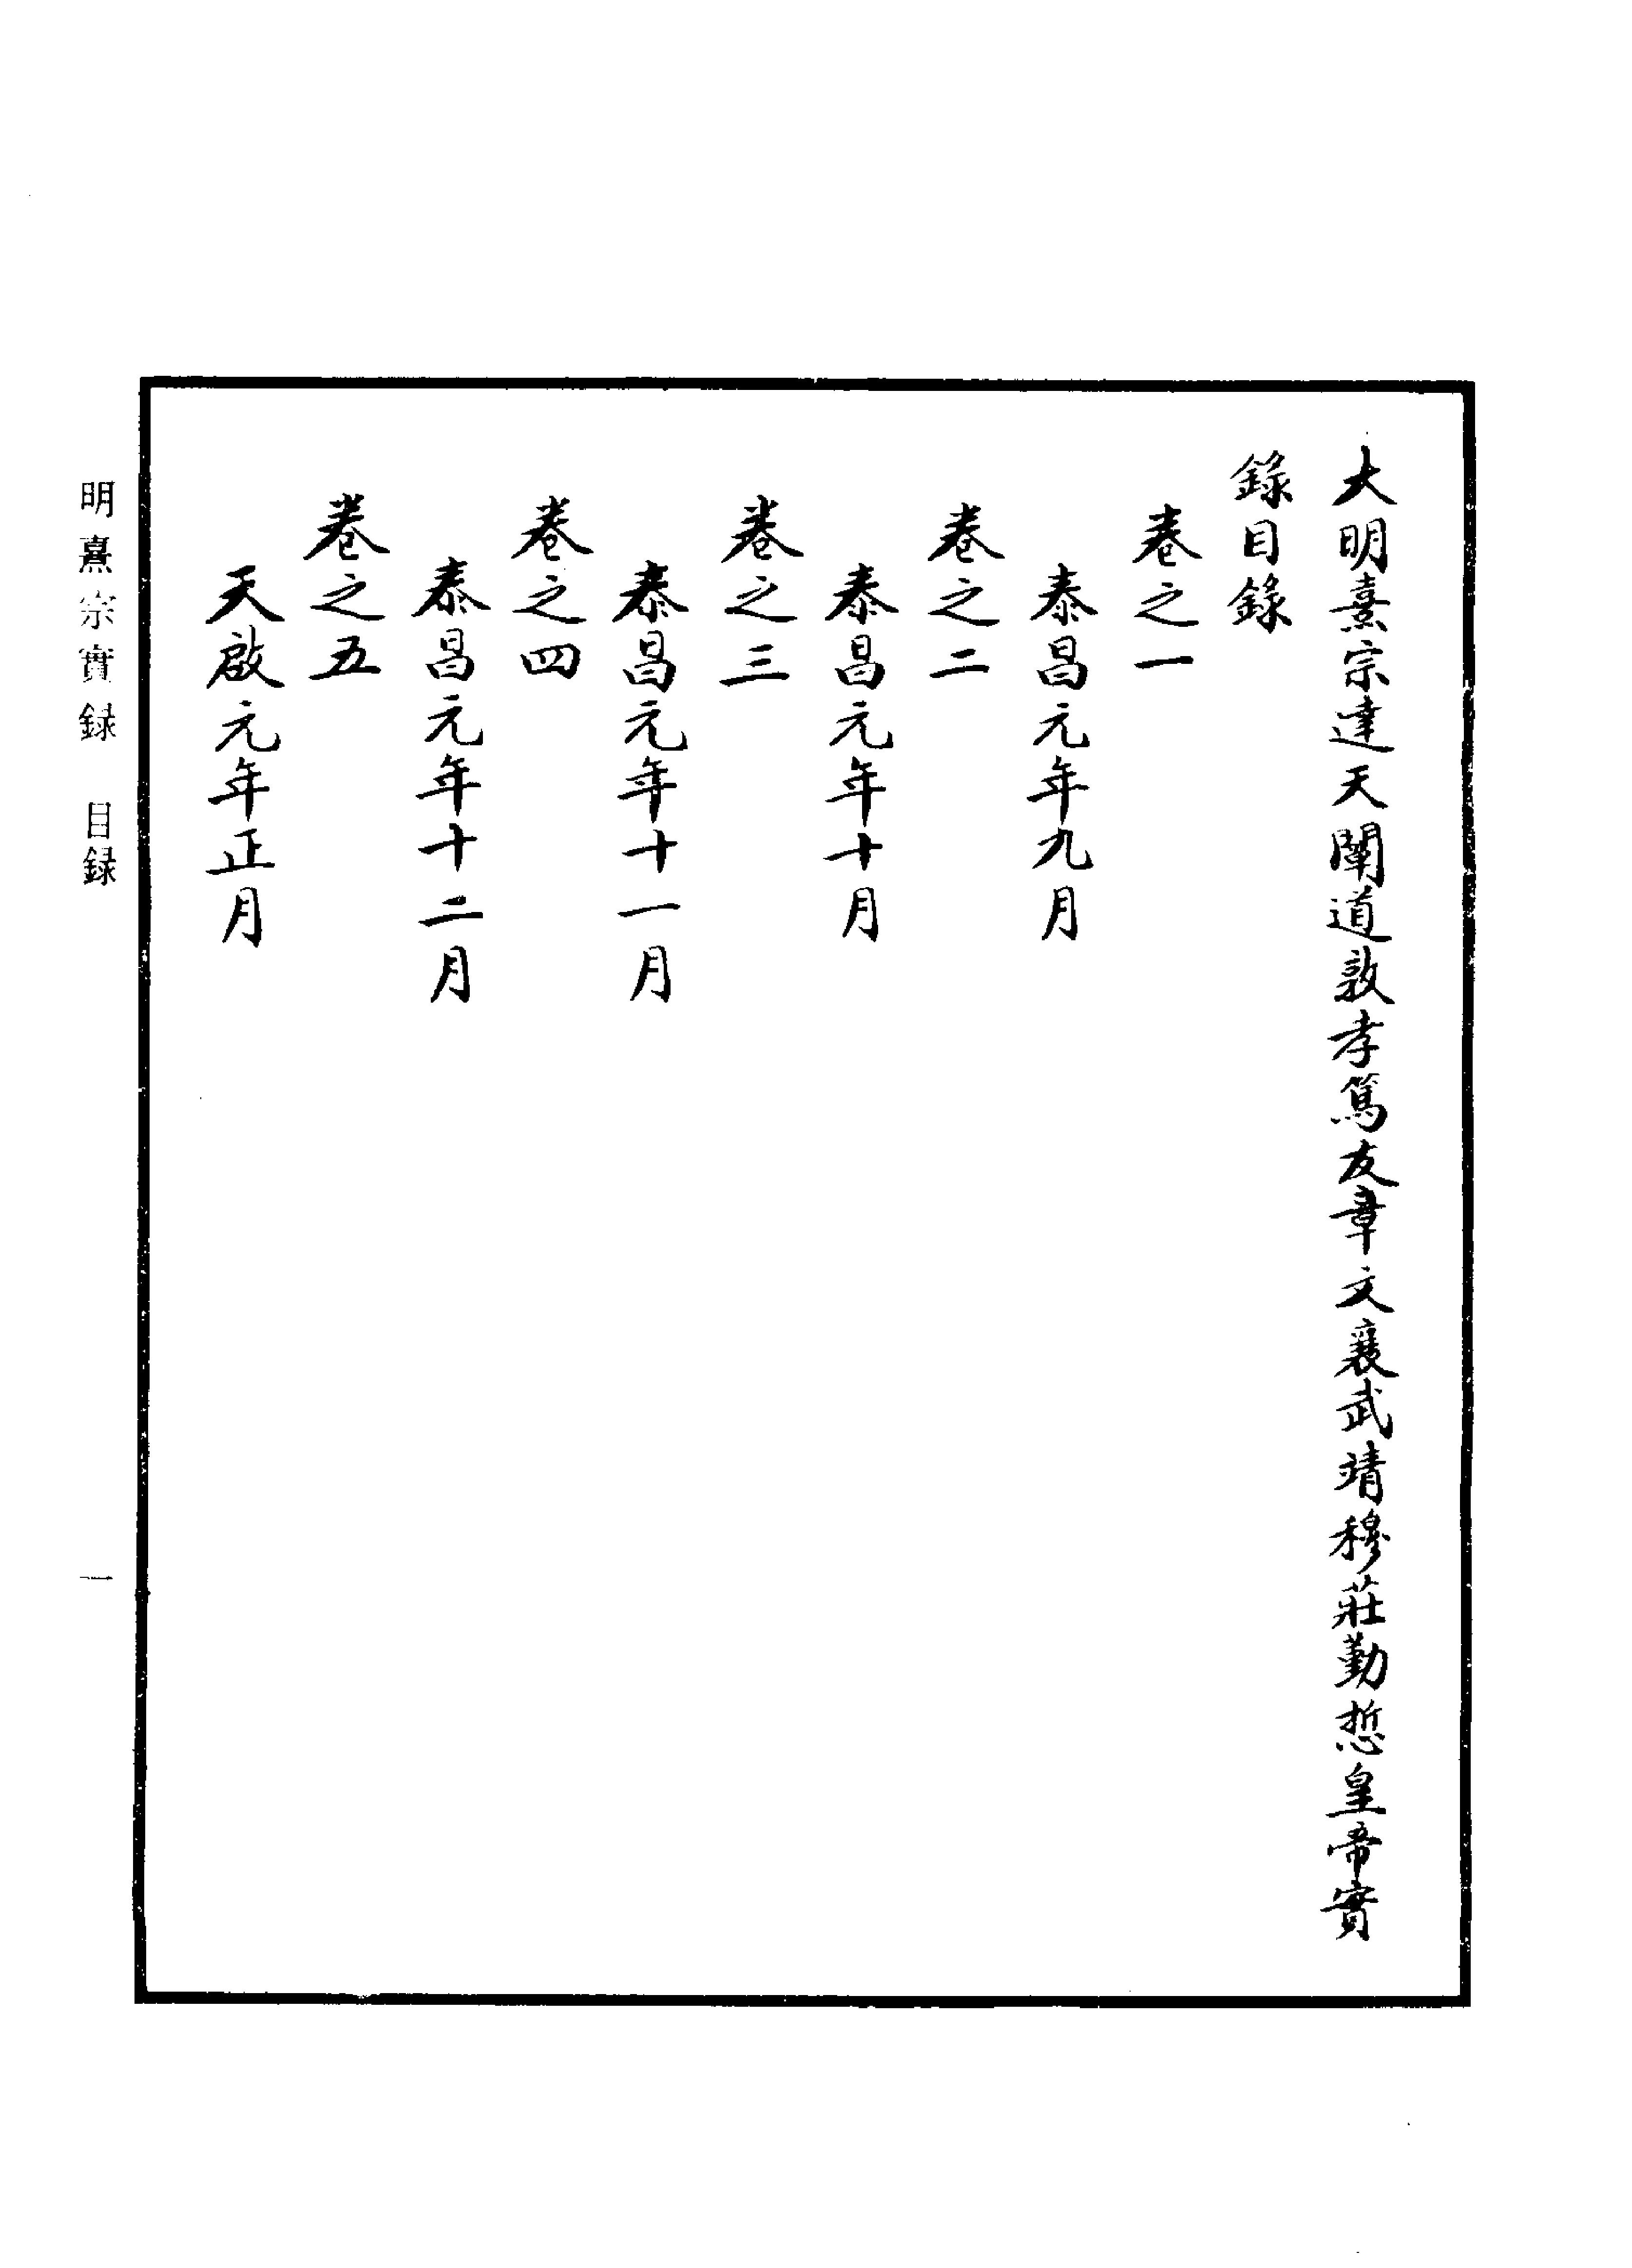 大明熹宗達天闡道敦孝篤友章文襄武靖穆莊勤悊皇帝實
錄目錄
卷之一
泰昌元年九月
卷之二
泰昌元年十月
卷之三
泰昌元年十一月
卷之四
泰昌元年十二月
卷之五
天啟元年正月
明熹宗實録 目録
一